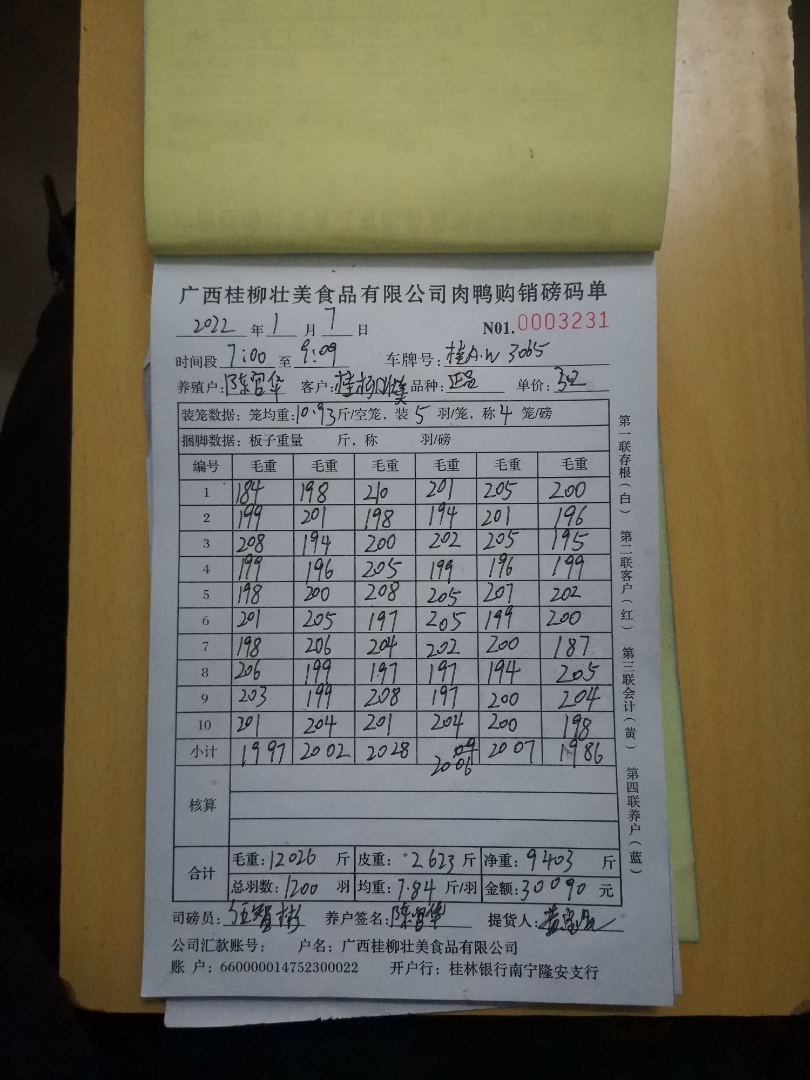 广西桂柳壮美食品有限公司肉鸭购销磅码单
2022 年 1 月 7 日 N01.0003231
时间段 7:00 至 9:09 车牌号: 桂A·W 3065
养殖户: 陈官华 客户: 桂柳壮美 品种: 正品 单价: 3.2
装笼数据: 笼均重: 10.93 斤/空笼, 装 5 羽/笼, 称 4 笼/磅
捆脚数据: 板子重量 斤, 称 羽/磅
编号 毛重 毛重 毛重 毛重 毛重 毛重
1 184 198 210 201 205 200
2 199 201 198 194 201 196
3 208 194 200 202 205 195
4 199 196 205 199 196 199
5 198 200 208 205 207 202
6 201 205 197 205 199 200
7 198 206 204 202 200 187
8 206 199 197 197 194 205
9 203 199 208 197 200 204
10 201 204 201 204 200 198
小计 1997 2002 2028 2006 2007 1986
核算
合计 毛重: 12026 斤 皮重: 2623 斤 净重: 9403 斤
总羽数: 1200 羽 均重: 7.84 斤/羽 金额: 30090 元
司磅员: 养户签名: 陈官华 提货人:
公司汇款账号: 户名: 广西桂柳壮美食品有限公司
账 户: 660000014752300022 开户行: 桂林银行南宁隆安支行
第一联存根(白) 第二联客户(红) 第三联会计(黄) 第四联养户(蓝)